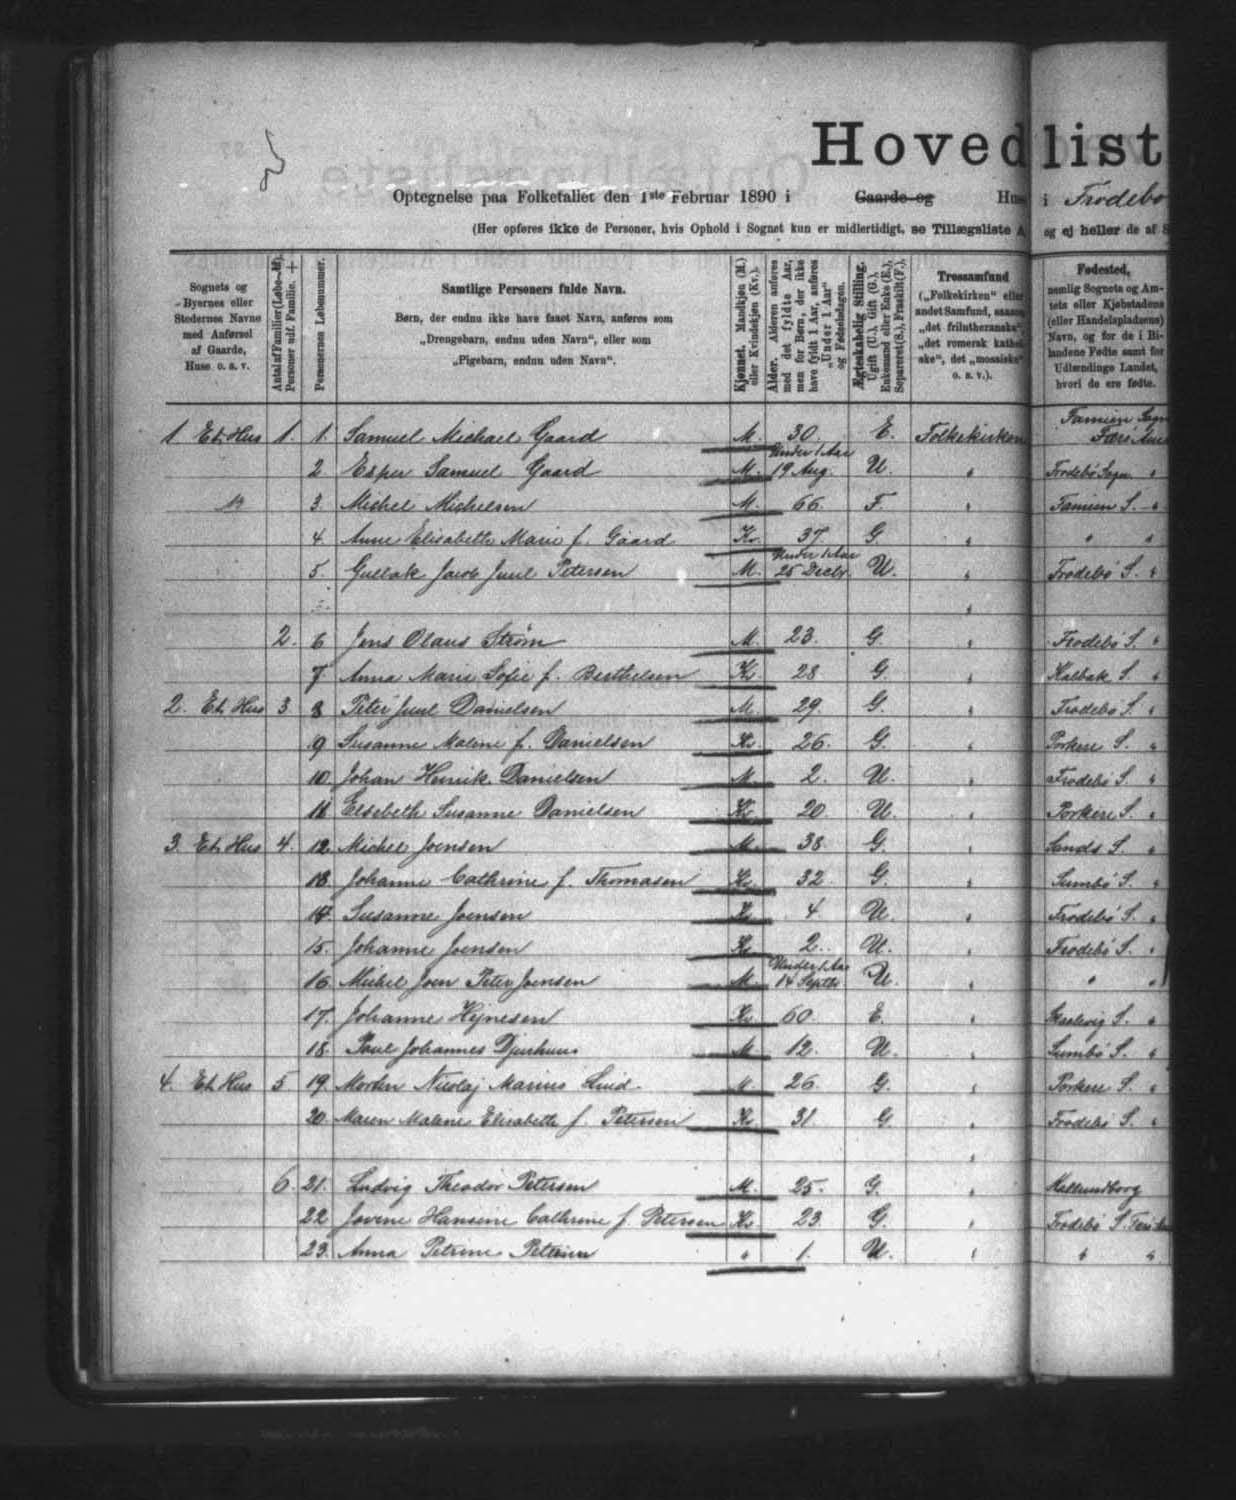 Hovedlist
Optegnelse paa Folketallet den 1ste Februar 1890 i Gaarde og Huse i Frodebø
(Her opføres ikke de Personer, hvis Ophold i Sognet kun er midlertidigt, se Tillægsliste A og ej heller de af S
Sognets og Byernes eller Stedernes Navne med Anførsel af Gaarde, Huse o. s. v.
Antal af Familier (Løbe-№). Personer udf. Familie. +
Personernes Løbenummer.
Samtlige Personers fulde Navn.
Børn, der endnu ikke have faaet Navn, anføres som
„Drengebarn, endnu uden Navn“, eller som
„Pigebarn, endnu uden Navn“.
Kjønnet. Mandkjøn (M.) eller Kvindekjøn (Kv.).
Alder. Alderen anføres med det fyldte Aar, men for Børn, der ikke have fyldt 1 Aar, anføres „Under 1 Aar“ og Fødselsdagen.
Ægteskabelig Stilling. Ugift (U.), Gift (G.), Enkemand eller Enke (E.), Separeret (S.), Fraskilt (F.).
Trossamfund
(„Folkekirken“ eller
andet Samfund, saasom
„det frilutheranske“,
„det romersk kathol
ske“, det „mosaiske“
o. s. v.).
Fødested,
nemlig Sognets og Am-
tets eller Kjøbstadens
(eller Handelspladsens)
Navn, og for de i Bi-
landene Fødte samt for
Udlændinge Landet,
hvori de ere fødte.
1 Et Hus 1. 1. Samuel Michael Gaard M. 30. E. Folkekirken Famien Sogn Færø Amt
2. Esper Samuel Gaard M. Under 1 Aar 19 Aug. U. " Frodebø Sogn "
3. Michel Michelsen M. 66. F. " Famien S. "
4. Anne Elisabeth Marie f. Gaard Kv. 37. G. " " "
5. Gullak Jacob Juul Petersen M. Under 1 Aar 25 Decbr. U. " Frodebø S. "
2. 6 Jens Olaus Strøm M. 23. G. " Frodebø S. "
7. Anna Marie Sofie f. Berthelsen Kv. 28 G. " Kalbak S. "
2. Et Hus 3 8 Peter Juul Danielsen M. 29. G. " Frodebø S. "
9 Susanne Malene f. Danielsen Kv. 26. G. " Porkere S. "
10. Johan Henrik Danielsen M. 2. U. " Frodebø S. "
11 Elsebeth Susanne Danielsen Kv. 20. U. " Porkere S. "
3. Et Hus 4. 12. Michel Joensen M. 38. G. " Sands S. "
13. Johanne Cathrine f. Thomasen Kv. 32 G. " Sumbø S. "
14. Susanne Joensen Kv. 4 U. " Frodebø S. "
15. Johanne Joensen Kv. 2. U. " Frodebø S. "
16. Michel Joen Peter Joensen M. Under 1 Aar 14 Septbr. U. " " "
17. Johanne Hejnesen Kv. 60. E. " S. "
18. Poul Johannes Djurhuus M. 12. U. " Sumbø S. "
4. Et Hus 5 19. Morten Nicolaj Marius Lind M. 26. G. " Porkere S. "
20. Maren Malene Elisabeth f. Petersen Kv. 31. G " Frodebø S. "
6. 21. Ludvig Theodor Petersen M. 25. G. " Kallundborg
22 Jovine Hansine Cathrine f. Petersen Kv. 23. G. " Frodebø S. Færø Amt
23. Anna Petrine Petersen " 1. U. " " "